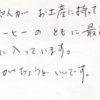 んが お土産に持って
ーヒーの ともに最
に入っています。
がちょうど いいです。